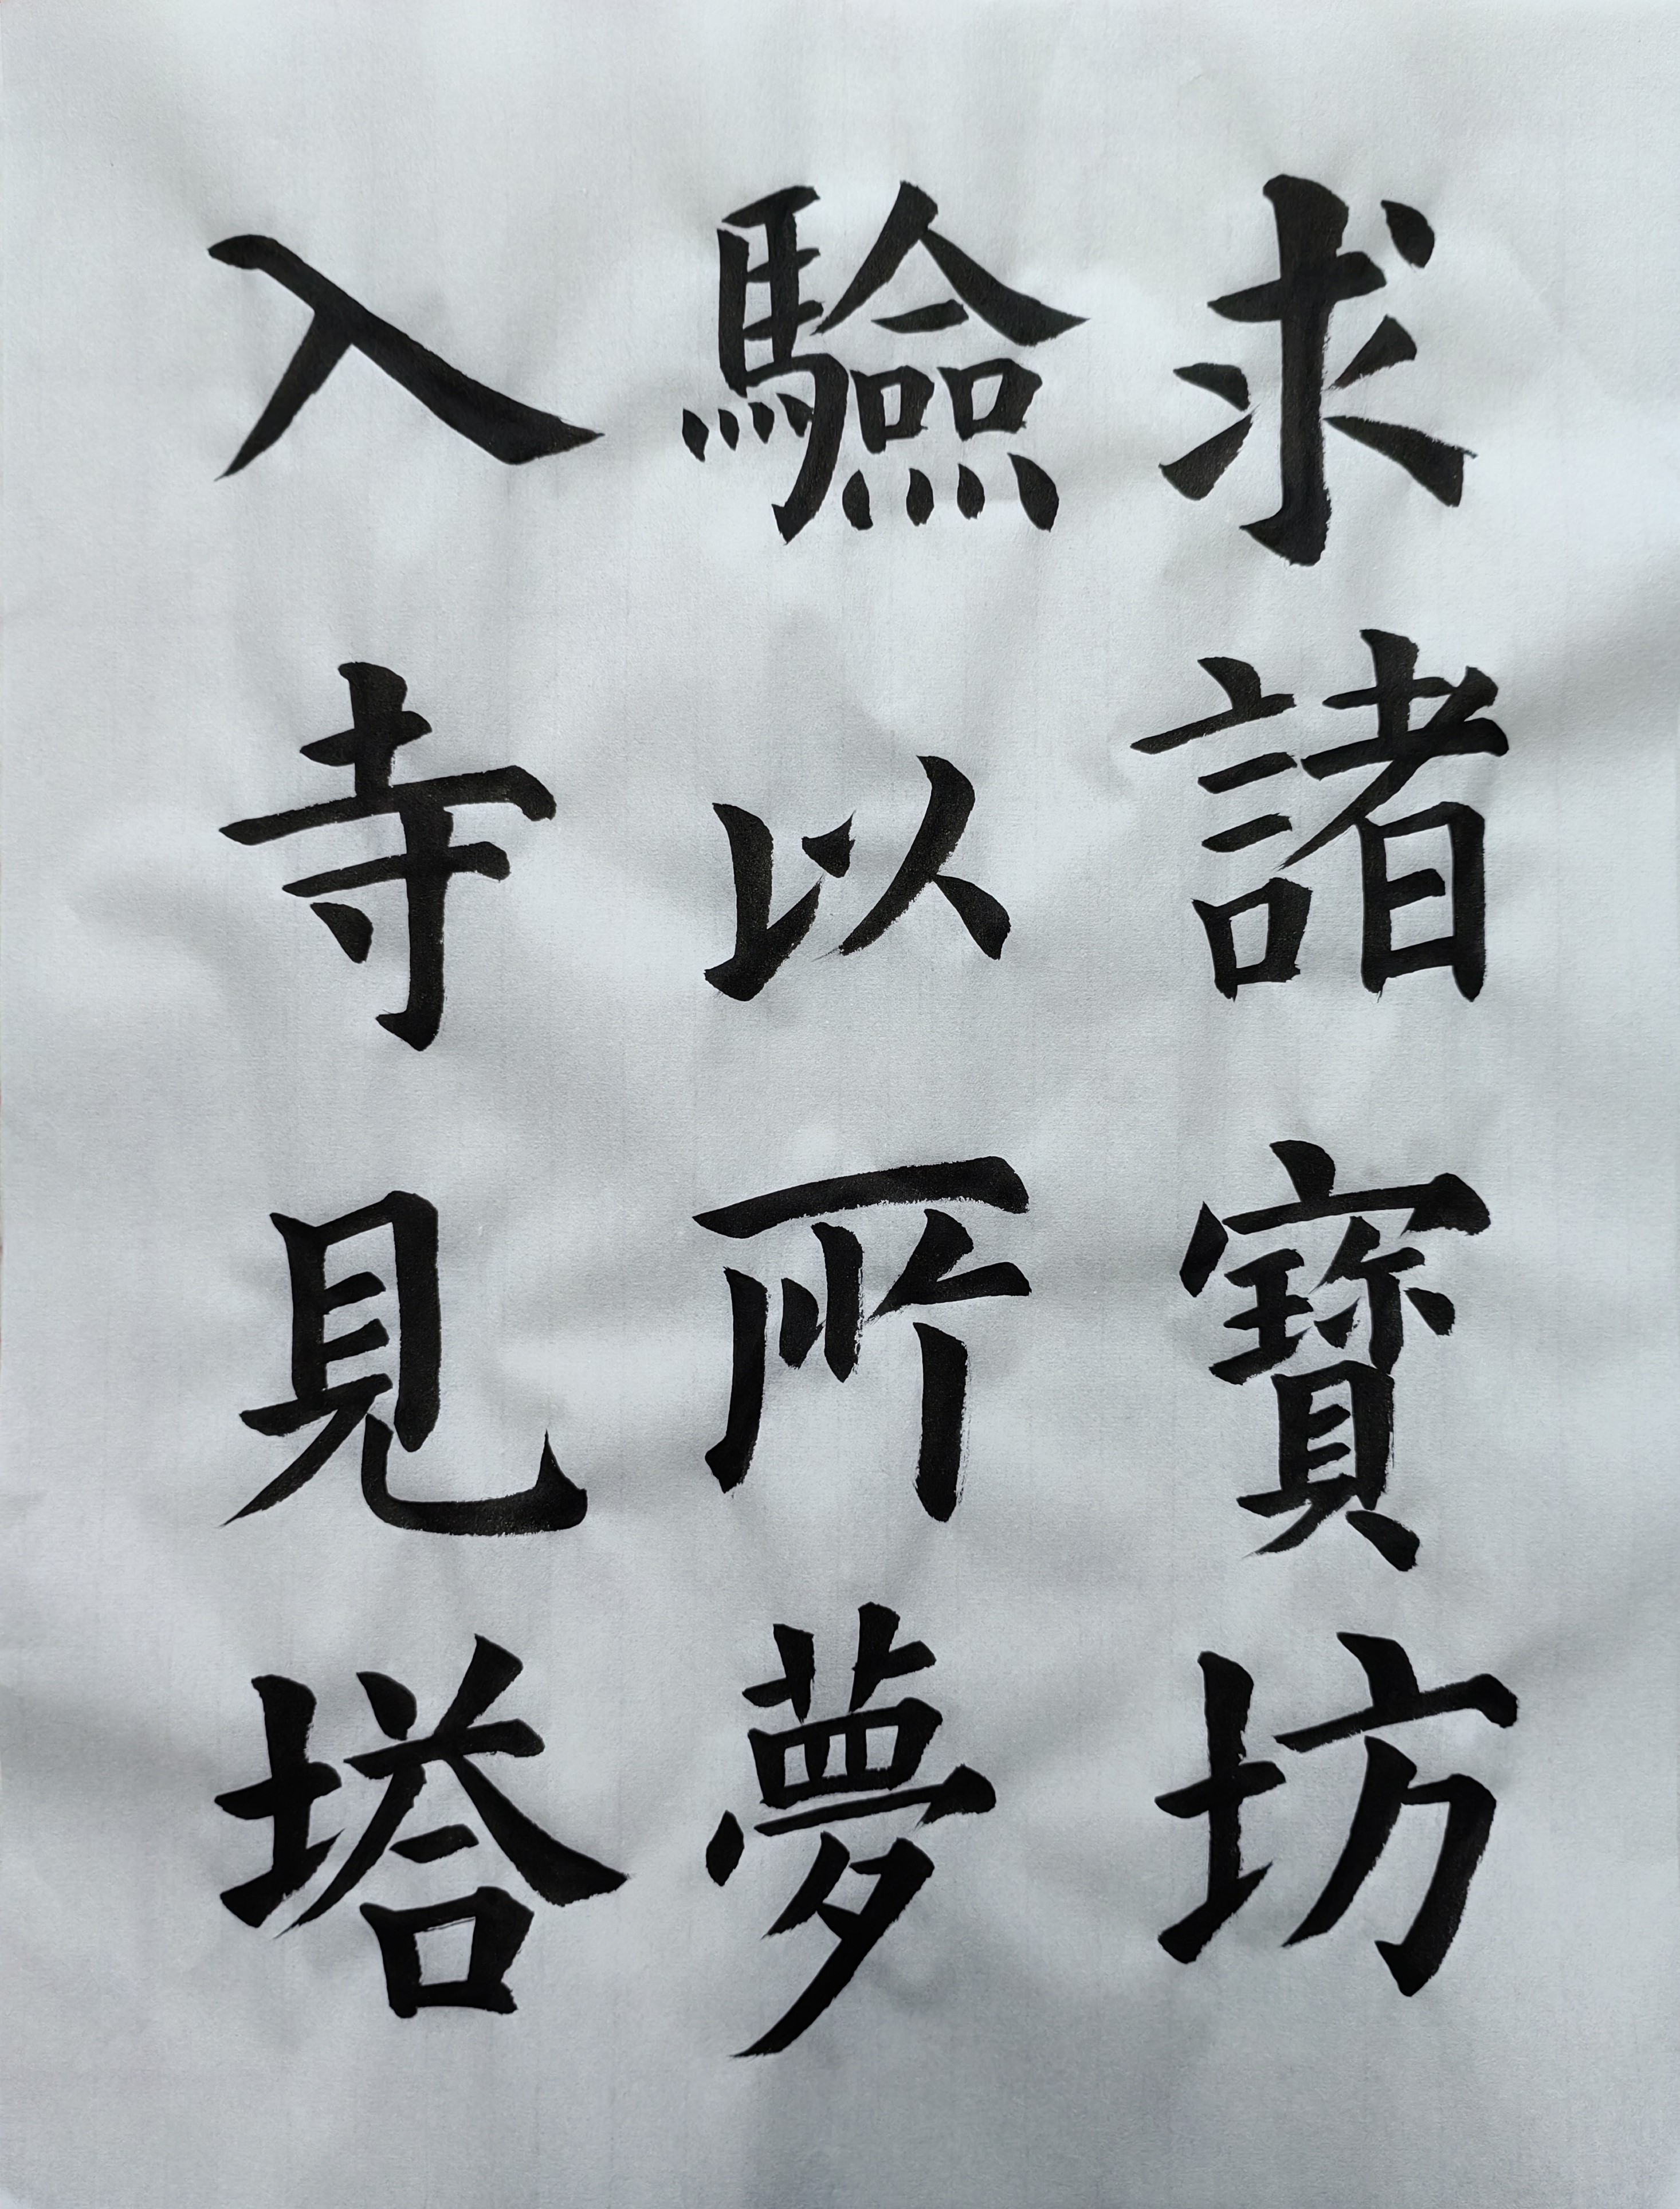 求諸寶坊
驗以所夢
入寺見塔